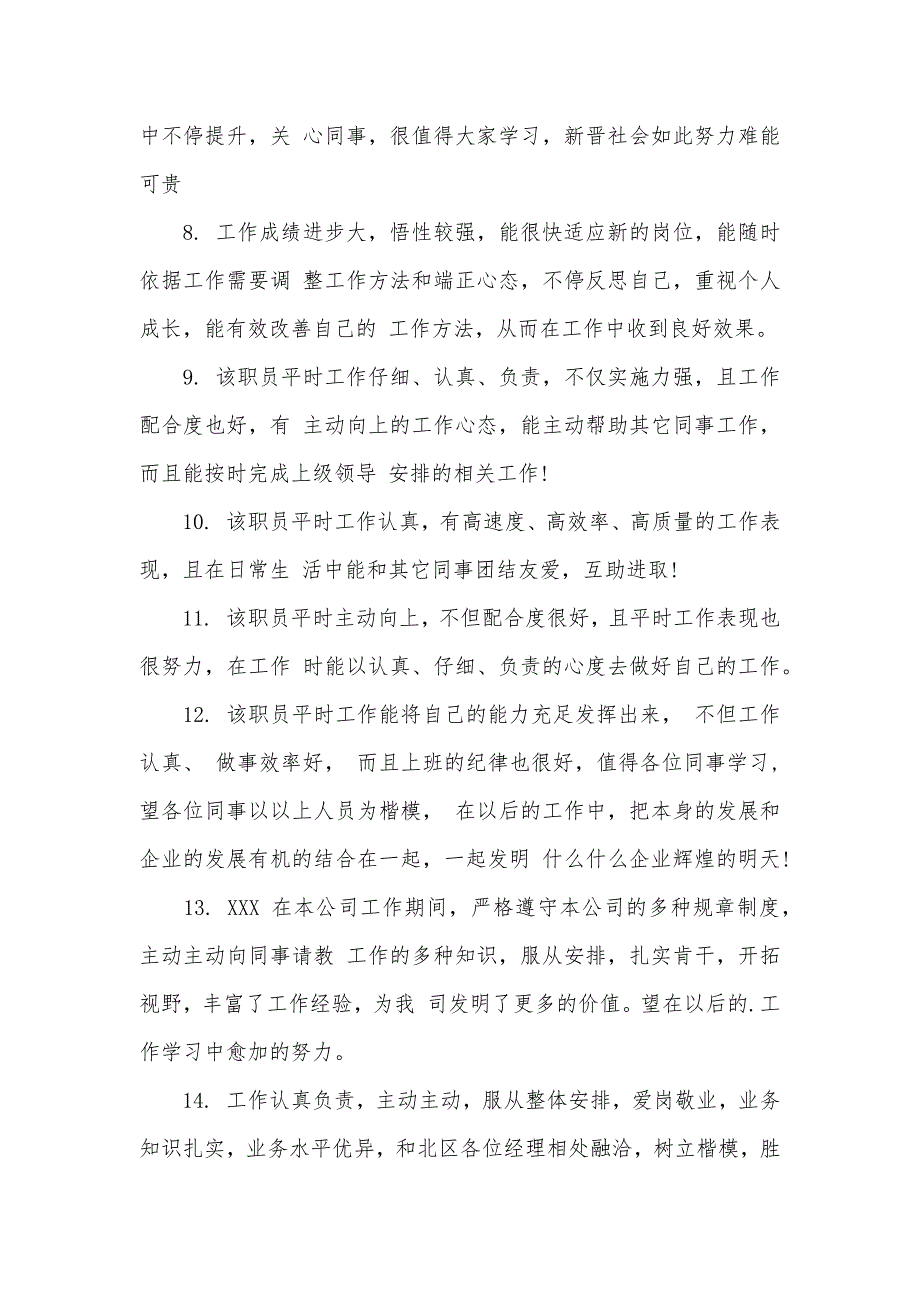 中不停提升，关 心同事，很值得大家学习，新晋社会如此努力难能
可贵
8. 工作成绩进步大，悟性较强，能很快适应新的岗位，能随时
依据工作需要调 整工作方法和端正心态，不停反思自己，重视个人
成长，能有效改善自己的 工作方法，从而在工作中收到良好效果。
9. 该职员平时工作仔细、认真、负责，不仅实施力强，且工作
配合度也好，有 主动向上的工作心态，能主动帮助其它同事工作，
而且能按时完成上级领导 安排的相关工作!
10. 该职员平时工作认真，有高速度、高效率、高质量的工作表
现，且在日常生 活中能和其它同事团结友爱，互助进取!
11. 该职员平时主动向上，不但配合度很好，且平时工作表现也
很努力，在工作 时能以认真、仔细、负责的心度去做好自己的工作。
12. 该职员平时工作能将自己的能力充足发挥出来， 不但工作
认真、 做事效率好， 而且上班的纪律也很好，值得各位同事学习，
望各位同事以以上人员为楷模， 在以后的工作中，把本身的发展和
企业的发展有机的结合在一起，一起发明 什么什么企业辉煌的明天!
13. XXX 在本公司工作期间，严格遵守本公司的多种规章制度，
主动主动向同事请教 工作的多种知识，服从安排，扎实肯干，开拓
视野，丰富了工作经验，为我 司发明了更多的价值。望在以后的.工
作学习中愈加的努力。
14. 工作认真负责，主动主动，服从整体安排，爱岗敬业，业务
知识扎实，业务水平优异，和北区各位经理相处融洽，树立楷模，胜